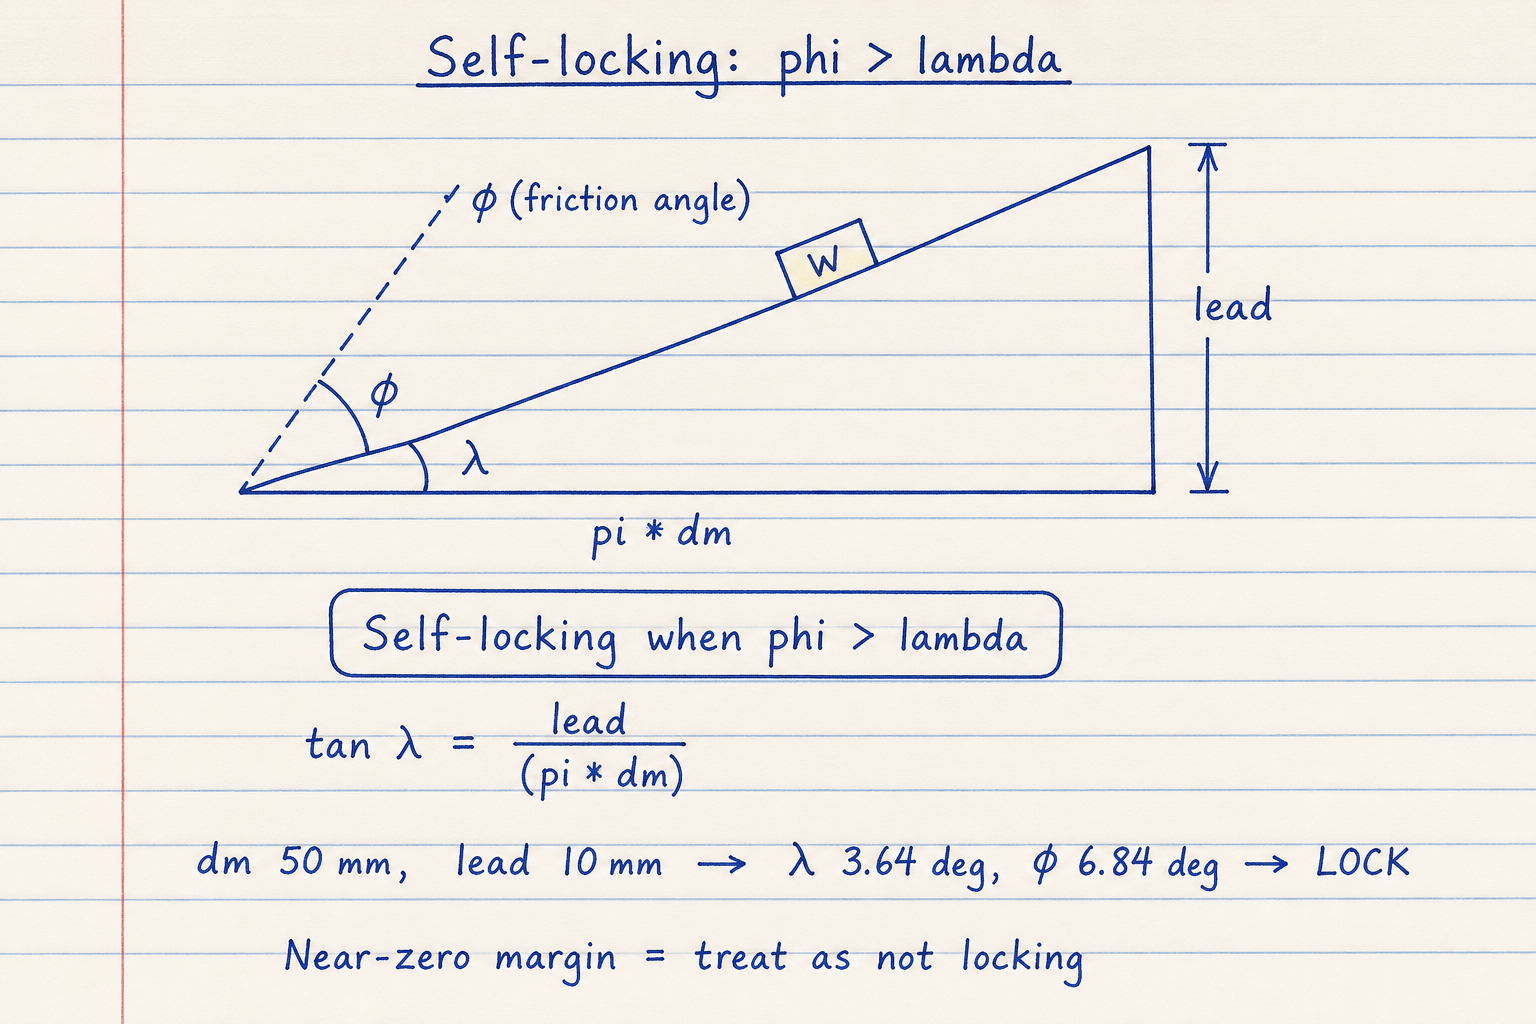 Self-locking: phi > lambda
ϕ (friction angle)
W
lead
ϕ
λ
pi * dm
Self-locking when phi > lambda
tan λ = lead
(pi * dm)
dm 50 mm, lead 10 mm → λ 3.64 deg, ϕ 6.84 deg → LOCK
Near-zero margin = treat as not locking